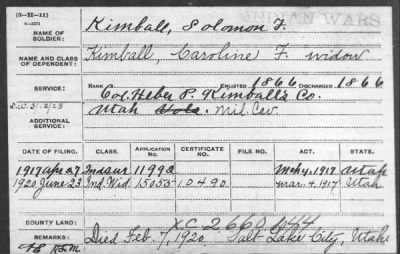 (3-XI-11)
INDIAN WARS
NAME OF SOLDIER: Kimball, Solomon F.
NAME AND CLASS OF DEPENDENT: Kimball, Caroline F. widow
SERVICE: RANK ENLISTED 1866 DISCHARGED 1866
Col. Heber P. Kimball's Co.
Utah Vols. Mil. Cav.
ADDITIONAL SERVICE:
DATE OF FILING. CLASS. APPLICATION No. CERTIFICATE NO. FILE NO. ACT. STATE.
1917 Apr 27 Ind Sur 11992 Mch 4, 1917 Utah
1920 June 23 Ind. Wid. 15055 10490 Mar. 4, 1917 Utah
COUNTY LAND: XC 2660044
REMARKS: Died Feb. 7, 1920, Salt Lake City, Utah